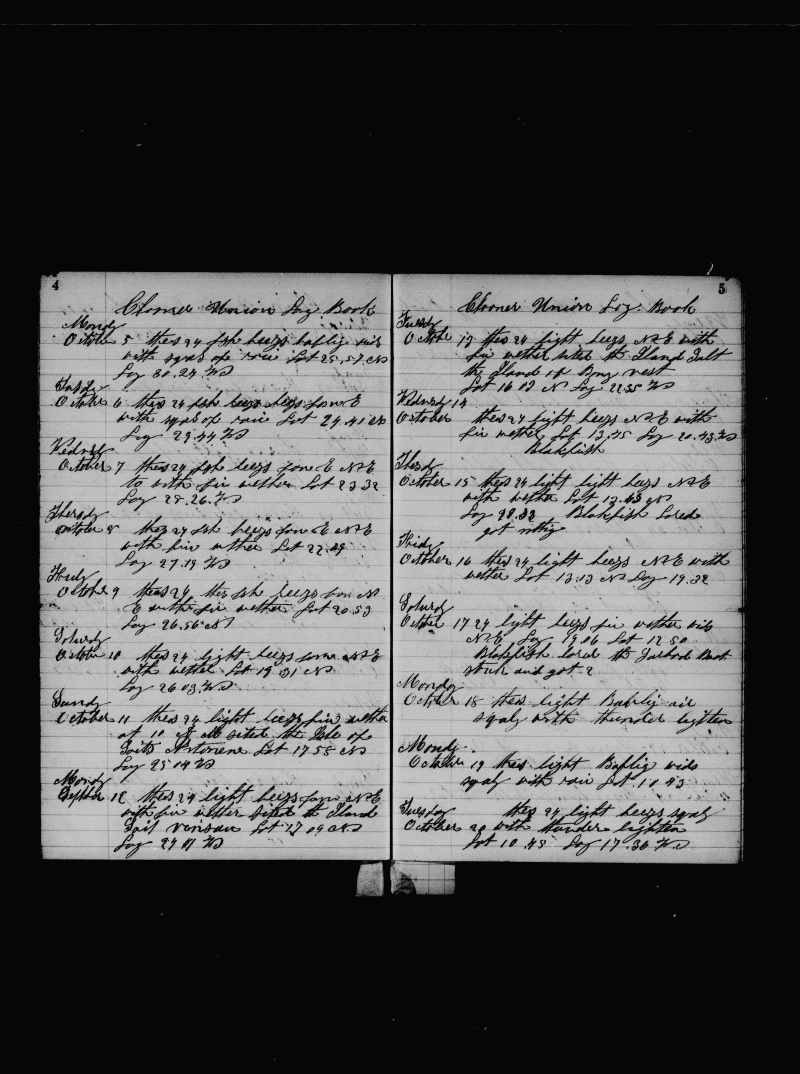 4
Choner Union Log Book
Mondy
October 5 thes 24 fsh beezs bafling wid
with sqals of rain Lat 25.57 N
Log 30.24 W
Tusdy
October 6 thes 24 fsh beezs from E
with sqals of rain Lat 24.41 N
Log 29.44 W
Wednsdy
October 7 thes 24 fsh beezs from E NE
to with fin wether Lat 23 32
Log 28.26. W
Thersdy
October 8 thes 24 fsh beezs from E NE
with fin wether Lat 22.09
Log 27.19 W
Fridy
October 9 thes 24 the fsh beezs from N
E with fin wether Lat 20.53
Log 26.56 W
Soturdy
October 10 thes 24 light beezs from N E
with wether Lat 19 01 N
Log 26 03 W
Sundy
October 11 thes 24 light beezs fin wether
at 10 A M sited the Isle of
Saint Antonene Lat 17 58 N
Log 25 04 W
Mondy
Septber 12 thes 24 light beezs from N E
with fin wether sited the Iland
Sait Vensau Lat 17 09 N
Log 24 W
5
Choner Union Log Book
Tusdy
October 13 thes 24 light beezs N E with
fin wether sited the Iland Salt
the Iland of vest
Lat 16 03 N Log 22.35 W
Wednsdy 14
October thes 24 light beezs N E with
fin wether Lat 13.45 Log 20.43 W
Blakfish
Thersdy
October 15 thes 24 light light beezs N E
with wether Lat 13.43 N
Log 20.33 Blakfish Lored
got nothig
Fridy
October 16 thes 24 light beezs N E with
wether Lat 13.13 N Log 19.32
Soturdy
October 17 24 light beezs fin wether wid
N E Log 19.06 Lat 12 50
Blakfish lored the Larbord Boat
stuck and got 2
Mondy
October 18 thes light Baflig air
sqaly with thunder lighten
Mondy
October 19 thes light Baflig wids
sqaly with rain Lat 10 43
Tuesday thes 24 light beezs sqaly
October 20 with thunder lighten
Lat 10.48 Log 17.30 W